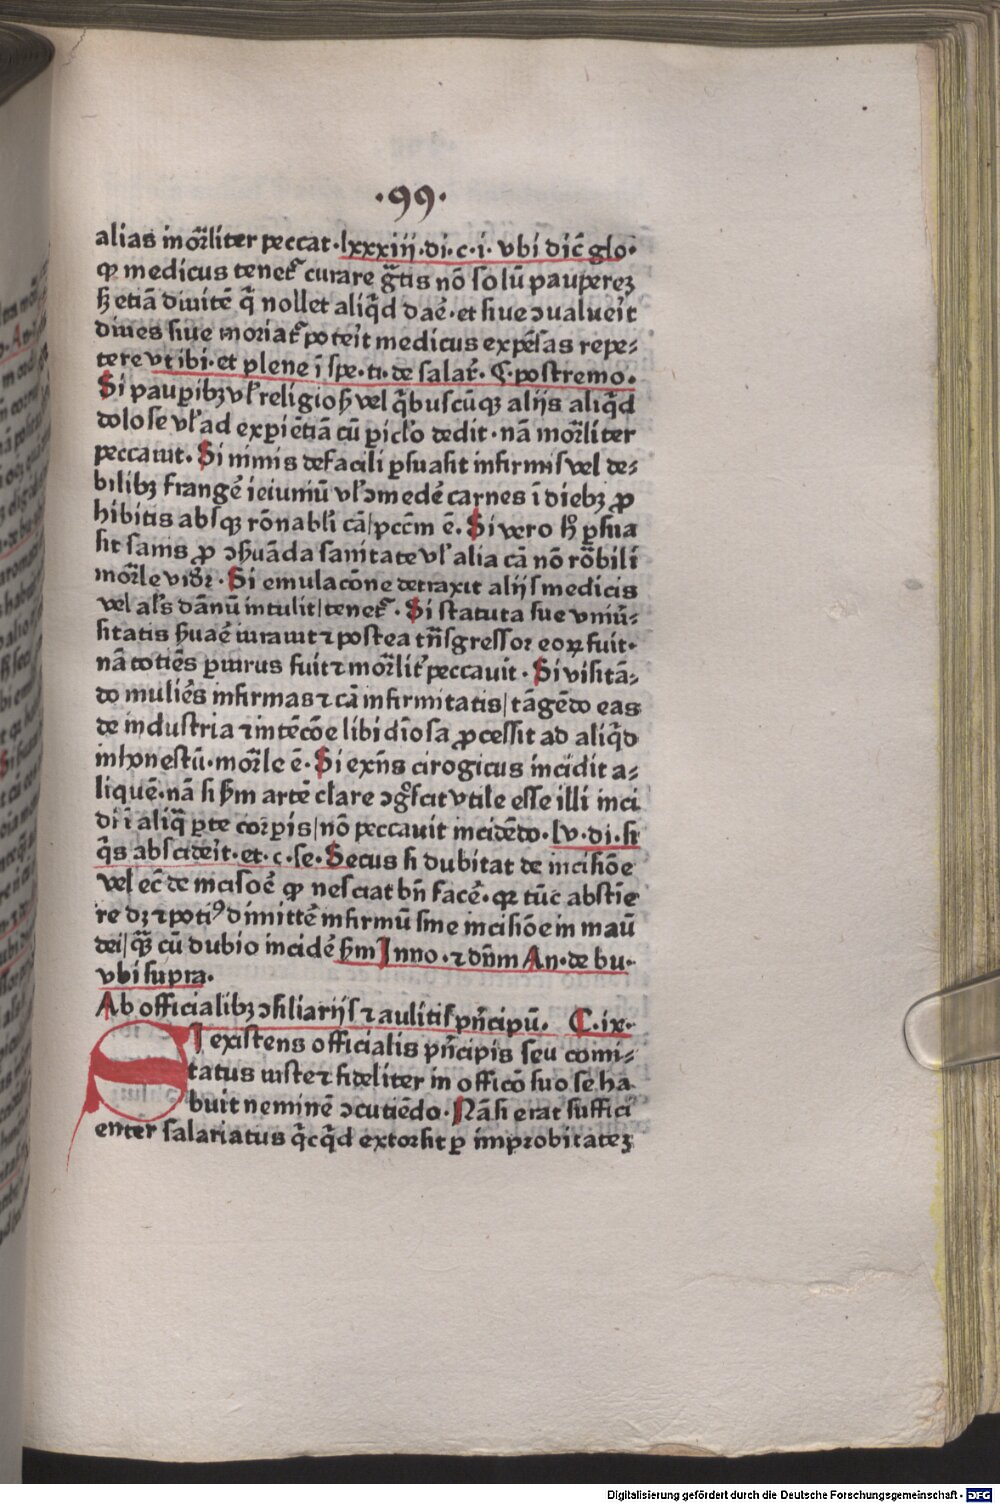 ·99·
alias mor̃liter peccat·lxxxiij·di·c·i·vbi dic̃ glo·
ꝙ medicus tenet᷑ curare gr̃tis nõ solũ pauperez
sꝫ etiã diuitẽ q̃ nollet aliq̃d daẽ·et siue ꝯualueit
diues siue moriat᷑ poteit medicus expẽsas repe⸗
tere vt ibi·et plene ĩ spe·ti·de salar̃·C·postremo·
Si paupibꝫ vl̃ religiosꝭ vel q̃buscũqꝫ alijs aliq̃d
dolose vl̃ ad expiẽtiã cũ piclo dedit·nã mor̃liter
peccauit·Si nimis defacili ꝑsuasit infirmis vel de⸗
bilibꝫ frangẽ ieiuniũ vl̃ ꝯmedẽ carnes ĩ diebꝫ ꝓ
hibitis absqꝫ rõnabli cã/pccm̃ ẽ·Si vero hꝰ ꝑsua
sit sanis ꝓ ꝯsuãda sanitate vl̃ alia cã nõ rõbili
mor̃le vidr̃·Si emulacõne detraxit alijs medicis
vel als̃ dãnũ intulit/tenet᷑·Si statuta sue vniũ⸗
sitatis suaẽ iurauit ⁊ postea tñsgressor eoꝝ fuit·
nã totiẽs piurus fuit ⁊ mor̃lit᷑ peccauit·Si visitã⸗
do muliẽs infirmas ⁊ cã infirmitatis/tãgẽdo eas
de industria ⁊ intẽcõe libidiosa ꝓcessit ad aliq̃d
inhonestũ·mor̃le ẽ·Si exñs cirogicus incidit a⸗
liquẽ·nã si sm̃ artẽ clare ꝯgscit vtile esse illi inci
di ĩ aliq̃ pte corpis/nõ peccauit incidẽdo·lv·di·si
q̃s abscideit·et·c·se·Secus si dubitat de incisiõe
vel ec̃ de incisoẽ ꝙ nesciat bñ facẽ·qꝛ tũc abstie
re dꝫ ⁊ potiꝰ dimittẽ infirmũ sine incisiõe in maũ
dei/qꝫ cũ dubio incidẽ sm̃ Inno·⁊ dñm An·de bu·
vbi supra·
Ab officialibꝫ ꝯsiliarijs ⁊ aulitis pñcipũ· C·ix·
SI existens officialis pñcipis seu comi⸗
tatus iuste ⁊ fideliter in officõ suo se ha
buit neminẽ ꝯcutiẽdo·Nã si erat suffici
enter salariatus q̃cq̃d extorsit ꝑ improbitatez
Digitalisierung gefördert durch die Deutsche Forschungsgemeinschaft - DFG